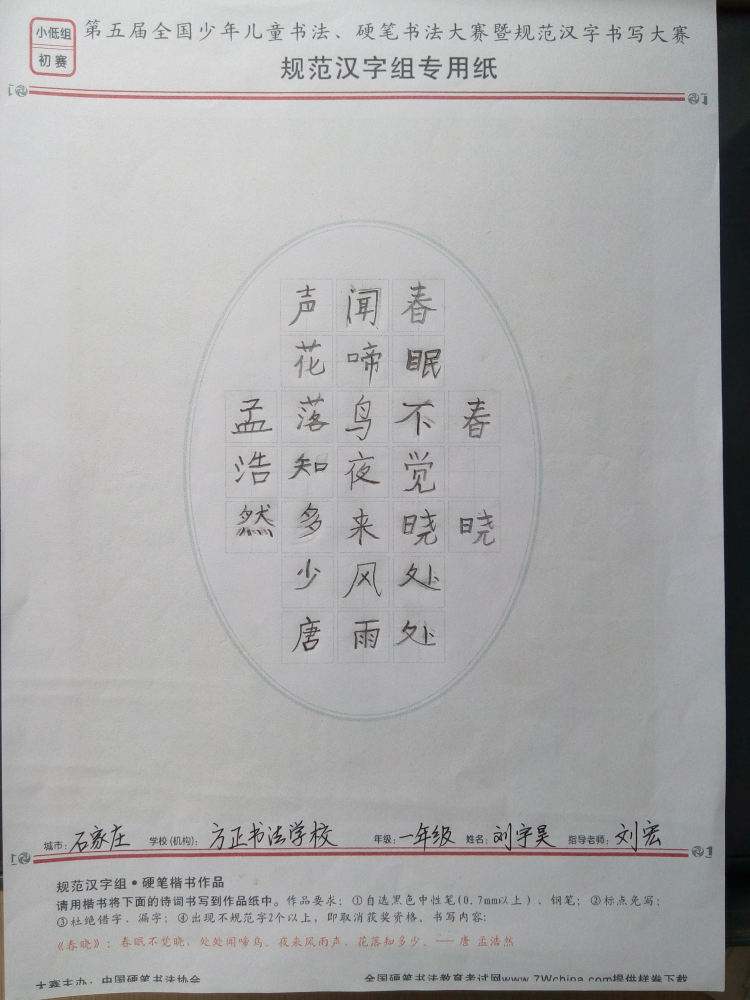 小低组
初赛
第五届全国少年儿童书法、硬笔书法大赛暨规范汉字书写大赛
规范汉字组专用纸
春晓
春眠不觉晓处处
闻啼鸟夜来风雨
声花落知多少唐
孟浩然
城市：石家庄 学校(机构)：方正书法学校 年级：一年级 姓名：刘宇昊 指导老师：刘宏
规范汉字组•硬笔楷书作品
请用楷书将下面的诗词书写到作品纸中。作品要求：①自选黑色中性笔(0.7mm以上)、钢笔；②标点免写；
③杜绝错字、漏字；④出现不规范字2个以上，即取消获奖资格，书写内容：
《春晓》：春眠不觉晓，处处闻啼鸟。夜来风雨声，花落知多少。——唐 孟浩然
大赛主办：中国硬笔书法协会 全国硬笔书法教育考试网www.7Wchina.com提供样卷下载